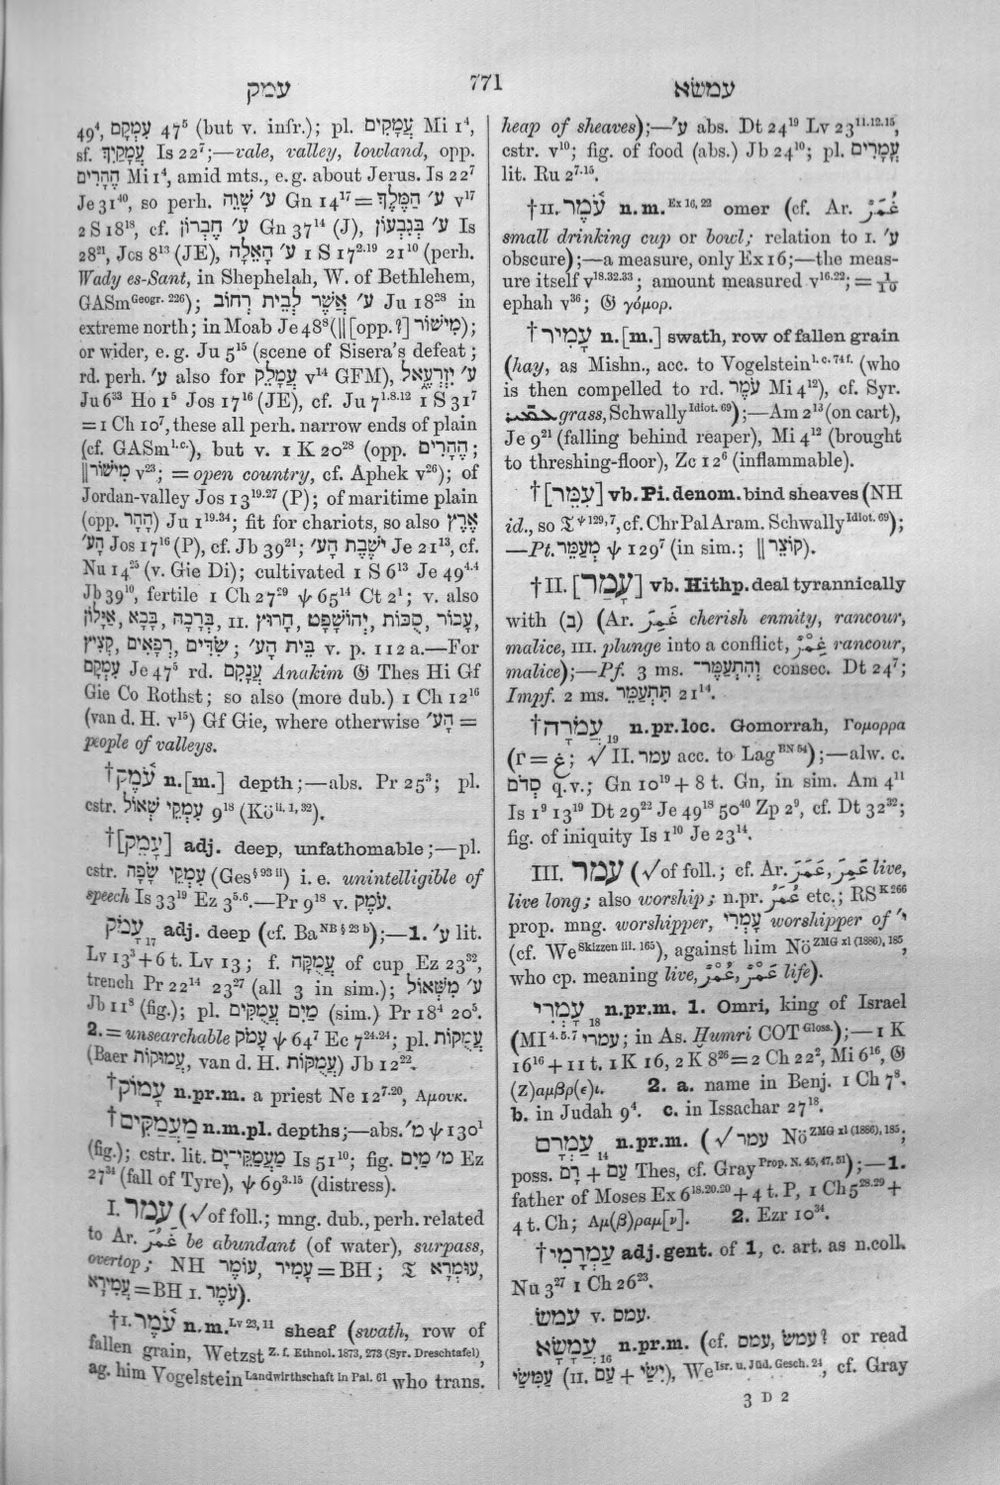 עמק
771
עמשׂא
49⁴, עִמְקָם 47⁵ (but v. infr.); pl. עֲמָקִים Mi 1⁴,
sf. עֲמָקַיִךְ Is 22⁷;—vale, valley, lowland, opp.
הֶהָרִים Mi 1⁴, amid mts., e.g. about Jerus. Is 22⁷
Je 31⁴⁰, so perh. ע׳ שָׁוֵה Gn 14¹⁷ = ע׳ הַמֶּלֶךְ v¹⁷
2 S 18¹⁸, cf. ע׳ חֶבְרוֹן Gn 37¹⁴ (J), ע׳ בְּגִבְעוֹן Is
28²¹, Jos 8¹³ (JE), ע׳ הָאֵלָה 1 S 17²·¹⁹ 21¹⁰ (perh.
Wady es-Sant, in Shephelah, W. of Bethlehem,
GASm Geogr. 226); ע׳ אֲשֶׁר לְבֵית רְחוֹב Ju 18²⁸ in
extreme north; in Moab Je 48⁸ (|| [opp.?] מִישׁוֹר);
or wider, e.g. Ju 5¹⁵ (scene of Sisera's defeat;
rd. perh. ע׳ also for עֲמָלֵק v¹⁴ GFM), ע׳ יִזְרְעֶאל
Ju 6³³ Ho 1⁵ Jos 17¹⁶ (JE), cf. Ju 7¹·⁸·¹² 1 S 31⁷
= 1 Ch 10⁷, these all perh. narrow ends of plain
(cf. GASm l.c.), but v. 1 K 20²⁸ (opp. הֶהָרִים;
|| מִישׁוֹר v²³; = open country, cf. Aphek v²⁶); of
Jordan-valley Jos 13¹⁹·²⁷ (P); of maritime plain
(opp. הָהָר) Ju 1¹⁹·³⁴; fit for chariots, so also אֶרֶץ
הָע׳ Jos 17¹⁶ (P), cf. Jb 39²¹; יֹשֶׁבֶת הָע׳ Je 21¹³, cf.
Nu 14²⁵ (v. Gie Di); cultivated 1 S 6¹³ Je 49⁴·⁴
Jb 39¹⁰, fertile 1 Ch 27²⁹ ψ 65¹⁴ Ct 2¹; v. also
עָכוֹר, סֻכּוֹת, יְהוֹשָׁפָט, חָרוּץ, II. בְּרָכָה, בָּכָא, אַיָּלוֹן,
בֵּית הָע׳; שִׂדִּים, רְפָאִים, קְצִיץ v. p. 112 a.—For
עִמְקָם Je 47⁵ rd. עֲנָקִם Anakim 𝔊 Thes Hi Gf
Gie Co Rothst; so also (more dub.) 1 Ch 12¹⁶
(van d. H. v¹⁵) Gf Gie, where otherwise הָע׳ =
people of valleys.
†עֹ֫מֶק n.[m.] depth;—abs. Pr 25³; pl.
cstr. עִמְקֵי שְׁאוֹל 9¹⁸ (Kö ii. 1, 32).
†[עָמֵק] adj. deep, unfathomable;—pl.
cstr. עִמְקֵי שָׂפָה (Ges § 93 ii) i. e. unintelligible of
speech Is 33¹⁹ Ez 3⁵·⁶.—Pr 9¹⁸ v. עֹמֶק.
עָמֹק 17 adj. deep (cf. Ba NB § 23 b);—1. ע׳ lit.
Lv 13³ + 6 t. Lv 13; f. עֲמֻקָּה of cup Ez 23³²,
trench Pr 22¹⁴ 23²⁷ (all 3 in sim.); ע׳ מִשְּׁאוֹל
Jb 11⁸ (fig.); pl. מַיִם עֲמֻקִּים (sim.) Pr 18⁴ 20⁵.
2. = unsearchable עָמֹק ψ 64⁷ Ec 7²⁴·²⁴; pl. עֲמֻקוֹת
(Baer עֲמוּקוֹת, van d. H. עֲמֻקּוֹת) Jb 12²².
†עָמוֹק n.pr.m. a priest Ne 12⁷·²⁰, Αμουκ.
†מַעֲמַקִּים n.m.pl. depths;—abs. מ׳ ψ 130¹
(fig.); cstr. lit. מַעֲמַקֵּי־יָם Is 51¹⁰; fig. מ׳ מַיִם Ez
27³⁴ (fall of Tyre), ψ 69³·¹⁵ (distress).
I. עמר (√ of foll.; mng. dub., perh. related
to Ar. غَمُرَ be abundant (of water), surpass,
overtop; NH עָמִיר, עוֹמֶר = BH; 𝔗 עוּמְרָא,
עֲמִירָא = BH I. עֹמֶר).
†I. עֹ֫מֶר n.m. Lv 23, 11 sheaf (swath, row of
fallen grain, Wetzst Z. f. Ethnol. 1873, 273 (Syr. Dreschtafel),
ag. him Vogelstein Landwirthschaft in Pal. 61 who trans.
heap of sheaves);—ע׳ abs. Dt 24¹⁹ Lv 23¹¹·¹²·¹⁵,
cstr. v¹⁰; fig. of food (abs.) Jb 24¹⁰; pl. עֳמָרִים
lit. Ru 2⁷·¹⁵.
†II. עֹ֫מֶר n.m. Ex 16, 22 omer (cf. Ar. غُمَرٌ
small drinking cup or bowl; relation to I. ע׳
obscure);—a measure, only Ex 16;—the meas-
ure itself v¹⁸·³²·³³; amount measured v¹⁶·²²; = 1/10
ephah v³⁶; 𝔊 γόμορ.
†עָמִיר n.[m.] swath, row of fallen grain
(hay, as Mishn., acc. to Vogelstein l. c. 74 f. (who
is then compelled to rd. עֹמֶר Mi 4¹²), cf. Syr.
grass, Schwally Idiot. 69);—Am 2¹³ (on cart),
Je 9²¹ (falling behind reaper), Mi 4¹² (brought
to threshing-floor), Zc 12⁶ (inflammable).
†[עִמֵּר] vb. Pi. denom. bind sheaves (NH
id., so 𝔗 ψ 129, 7, cf. ChrPalAram. Schwally Idiot. 69);
—Pt. מְעַמֵּר ψ 129⁷ (in sim.; || קוֹצֵר).
†II. [עָמַר] vb. Hithp. deal tyrannically
with (בְּ) (Ar. غَمِرَ cherish enmity, rancour,
malice, III. plunge into a conflict, غِمْرٌ rancour,
malice);—Pf. 3 ms. וְהִתְעַמֶּר־ consec. Dt 24⁷;
Impf. 2 ms. תִּתְעַמֵּר 21¹⁴.
†עֲמֹרָה 19 n.pr.loc. Gomorrah, Γομορρα
(Γ = غ; √ II. עמר acc. to Lag BN 54);—alw. c.
סְדֹם q.v.; Gn 10¹⁹ + 8 t. Gn, in sim. Am 4¹¹
Is 1⁹ 13¹⁹ Dt 29²² Je 49¹⁸ 50⁴⁰ Zp 2⁹, cf. Dt 32³²;
fig. of iniquity Is 1¹⁰ Je 23¹⁴.
III. עמר (√ of foll.; cf. Ar. عَمَرَ, عَمِرَ live,
live long; also worship; n.pr. عُمَرُ etc.; RS K 266
prop. mng. worshipper, עָמְרִי worshipper of י׳
(cf. We Skizzen iii. 165), against him Nö ZMG xl (1886), 185,
who cp. meaning live, عَمْرٌ, عُمْرٌ life).
עָמְרִי 18 n.pr.m. 1. Omri, king of Israel
(MI 4. 5. 7 עמרי; in As. Ḫumri COT Gloss.);—1 K
16¹⁶ + 11 t. 1 K 16, 2 K 8²⁶ = 2 Ch 22², Mi 6¹⁶, 𝔊
(Z)αμβρ(ε)ι. 2. a. name in Benj. 1 Ch 7⁸.
b. in Judah 9⁴. c. in Issachar 27¹⁸.
עַמְרָם 14 n.pr.m. (√ עמר Nö ZMG xl (1886), 185;
poss. עַם + רָם Thes, cf. Gray Prop. N. 45, 47, 51);—1.
father of Moses Ex 6¹⁸·²⁰·²⁰ + 4 t. P, 1 Ch 5²⁸·²⁹ +
4 t. Ch; Αμ(β)ραμ[ν]. 2. Ezr 10³⁴.
†עַמְרָמִי adj.gent. of 1, c. art. as n.coll.
Nu 3²⁷ 1 Ch 26²³.
עמשׂ v. עמס.
עֲמָשָׂא 16 n.pr.m. (cf. עמשׂ, עמס? or read
עַמִּשַׁי (II. עַם + יִשַׁי), We Isr. u. Jüd. Gesch. 24, cf. Gray
3 D 2